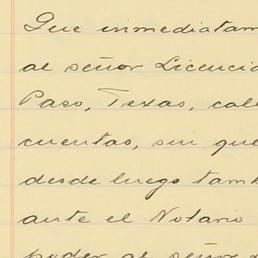 Que inmediatam
al señor Licencia
Paso, Texas, call
cuentas, sin que
desde luego tamb
ante el Notario
poder al señor